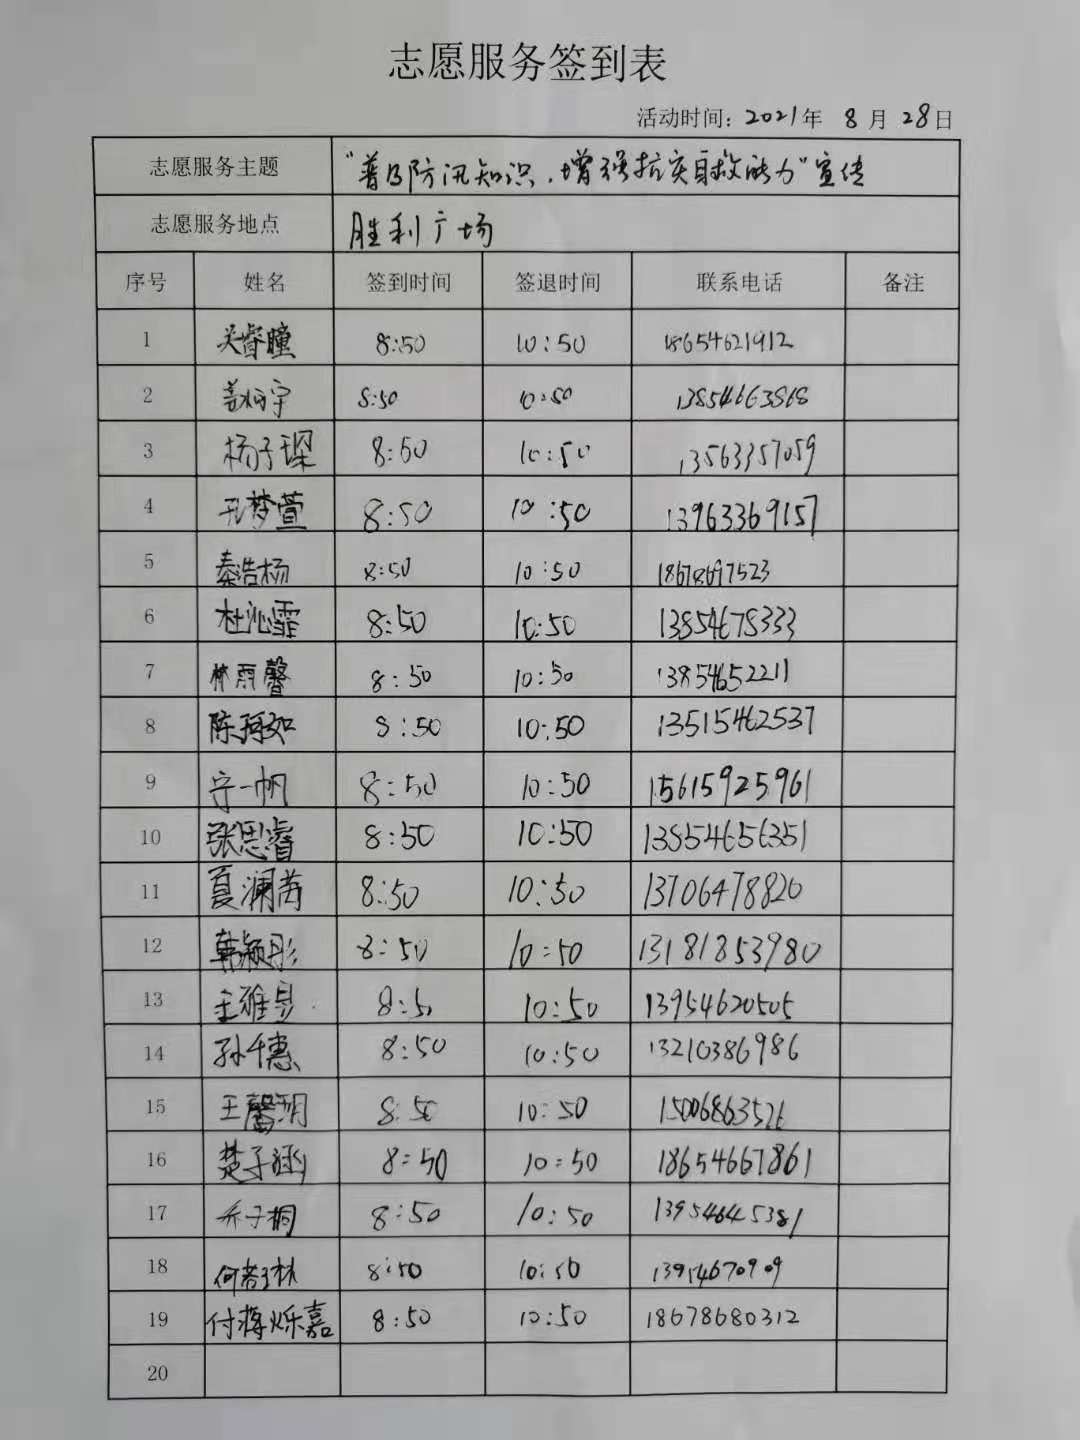 志愿服务签到表
活动时间：2021年 8月28日
志愿服务主题 "普及防汛知识，增强抗灾自救能力"宣传
志愿服务地点 胜利广场
序号 姓名 签到时间 签退时间 联系电话 备注
1 关睿瞳 8:50 10:50 18654621912
2 8:50 10:50 13854663868
3 杨子琛 8:50 10:50 13563357059
4 孔梦萱 8:50 10:50 13963369157
5 秦浩杨 8:50 10:50 18678697523
6 杜沁霏 8:50 10:50 13854678333
7 林雨馨 8:50 10:50 13854652211
8 8:50 10:50 13515462537
9 一帆 8:50 10:50 15615925961
10 张思睿 8:50 10:50 13854656351
11 夏澜芮 8:50 10:50 13706478820
12 韩颖彤 8:50 10:50 13181853980
13 8:50 10:50 13954620505
14 孙千惠 8:50 10:50 13210386986
15 王馨翊 8:50 10:50 15006863526
16 楚子涵 8:50 10:50 18654667861
17 乔子桐 8:50 10:50 13954645381
18 8:50 10:50 13954670909
19 付蒋烁嘉 8:50 10:50 18678680312
20